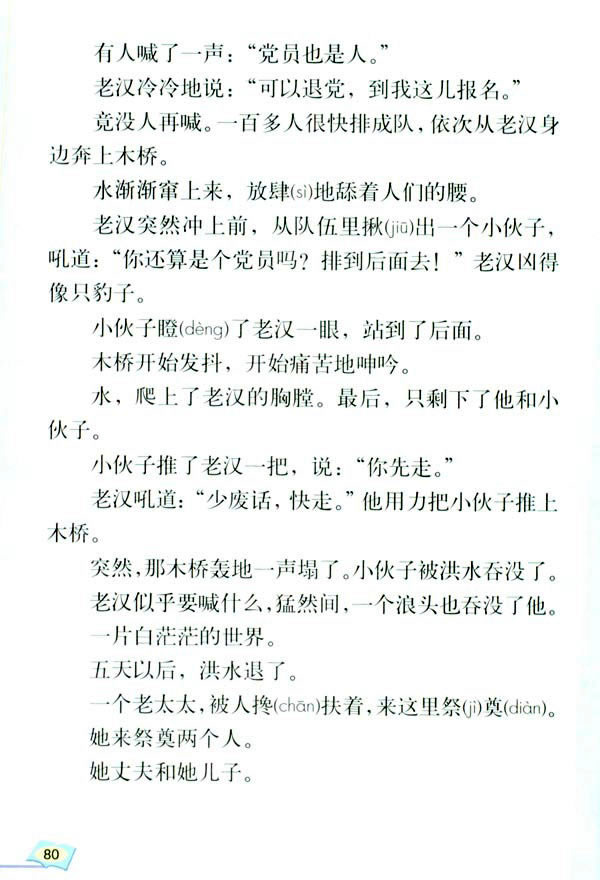 有人喊了一声：“党员也是人。”
老汉冷冷地说：“可以退党，到我这儿报名。”
竟没人再喊。一百多人很快排成队，依次从老汉身
边奔上木桥。
水渐渐窜上来，放肆(sì)地舔着人们的腰。
老汉突然冲上前，从队伍里揪(jiū)出一个小伙子，
吼道：“你还算是个党员吗？排到后面去！”老汉凶得
像只豹子。
小伙子瞪(dèng)了老汉一眼，站到了后面。
木桥开始发抖，开始痛苦地呻吟。
水，爬上了老汉的胸膛。最后，只剩下了他和小
伙子。
小伙子推了老汉一把，说：“你先走。”
老汉吼道：“少废话，快走。”他用力把小伙子推上
木桥。
突然，那木桥轰地一声塌了。小伙子被洪水吞没了。
老汉似乎要喊什么，猛然间，一个浪头也吞没了他。
一片白茫茫的世界。
五天以后，洪水退了。
一个老太太，被人搀(chān)扶着，来这里祭(jì)奠(diàn)。
她来祭奠两个人。
她丈夫和她儿子。
80